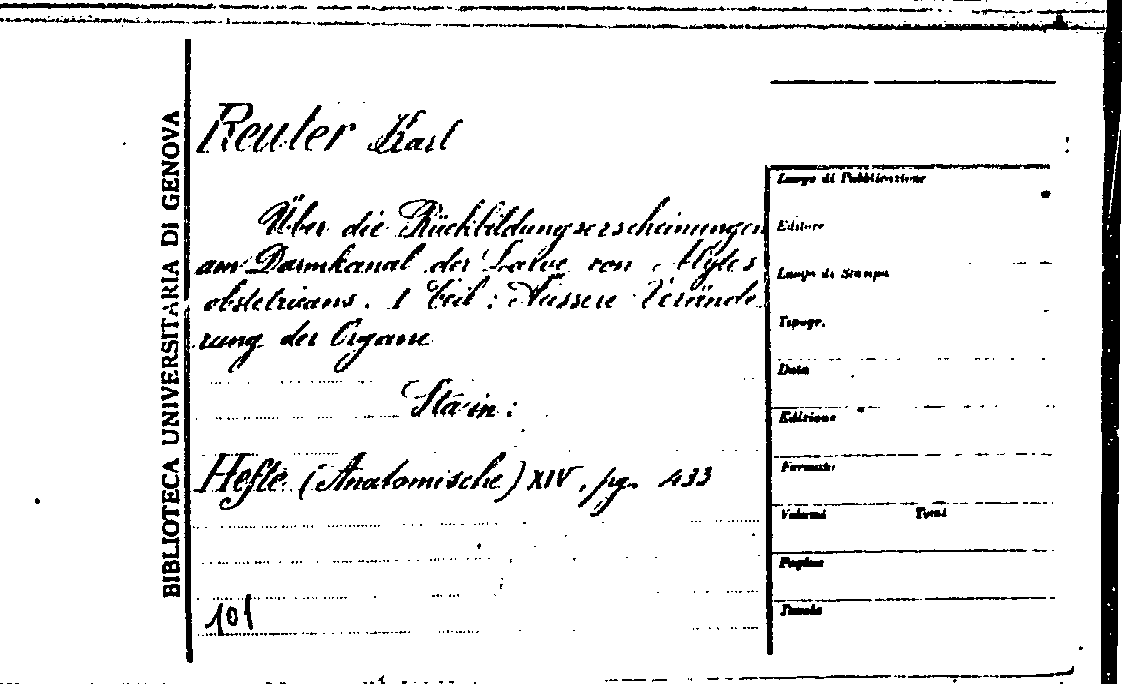 BIBLIOTECA UNIVERSITARIA DI GENOVA
Reuter Karl
Über die Rückbildungserscheinungen
am Darmkanal der Larve von Alytes
obstetricans. 1 Teil: Äussere Verände
rung der Organe
Sta in:
Hefte (Anatomische) XIV, pg. 433
101
Luogo di Pubblicazione
Editore
Luogo di Stampa
Tipogr.
Data
Edizione
Formato
Volumi Tomi
Pagine
Tavole